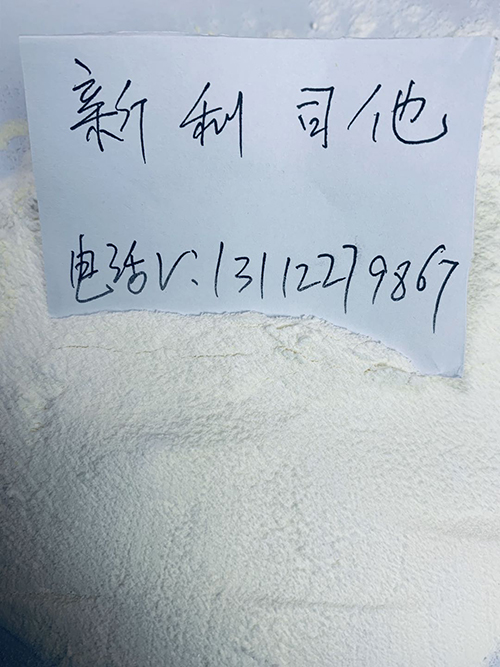 新利司他
电话V:13112279867